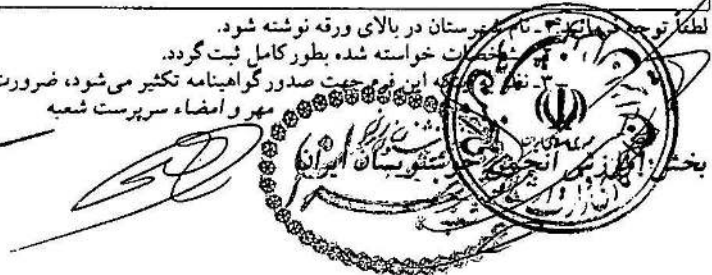 لطفاً توجه فرمائید: ۱ـ نام شهرستان در بالای ورقه نوشته شود.
مشخصات خواسته شده بطور کامل ثبت گردد.
۳ـ که این فرم جهت صدور گواهینامه تکثیر می‌شود، ضرورت
مهر و امضاء سرپرست شعبه
بخش آموزش انجمن خوشنویسان ایران